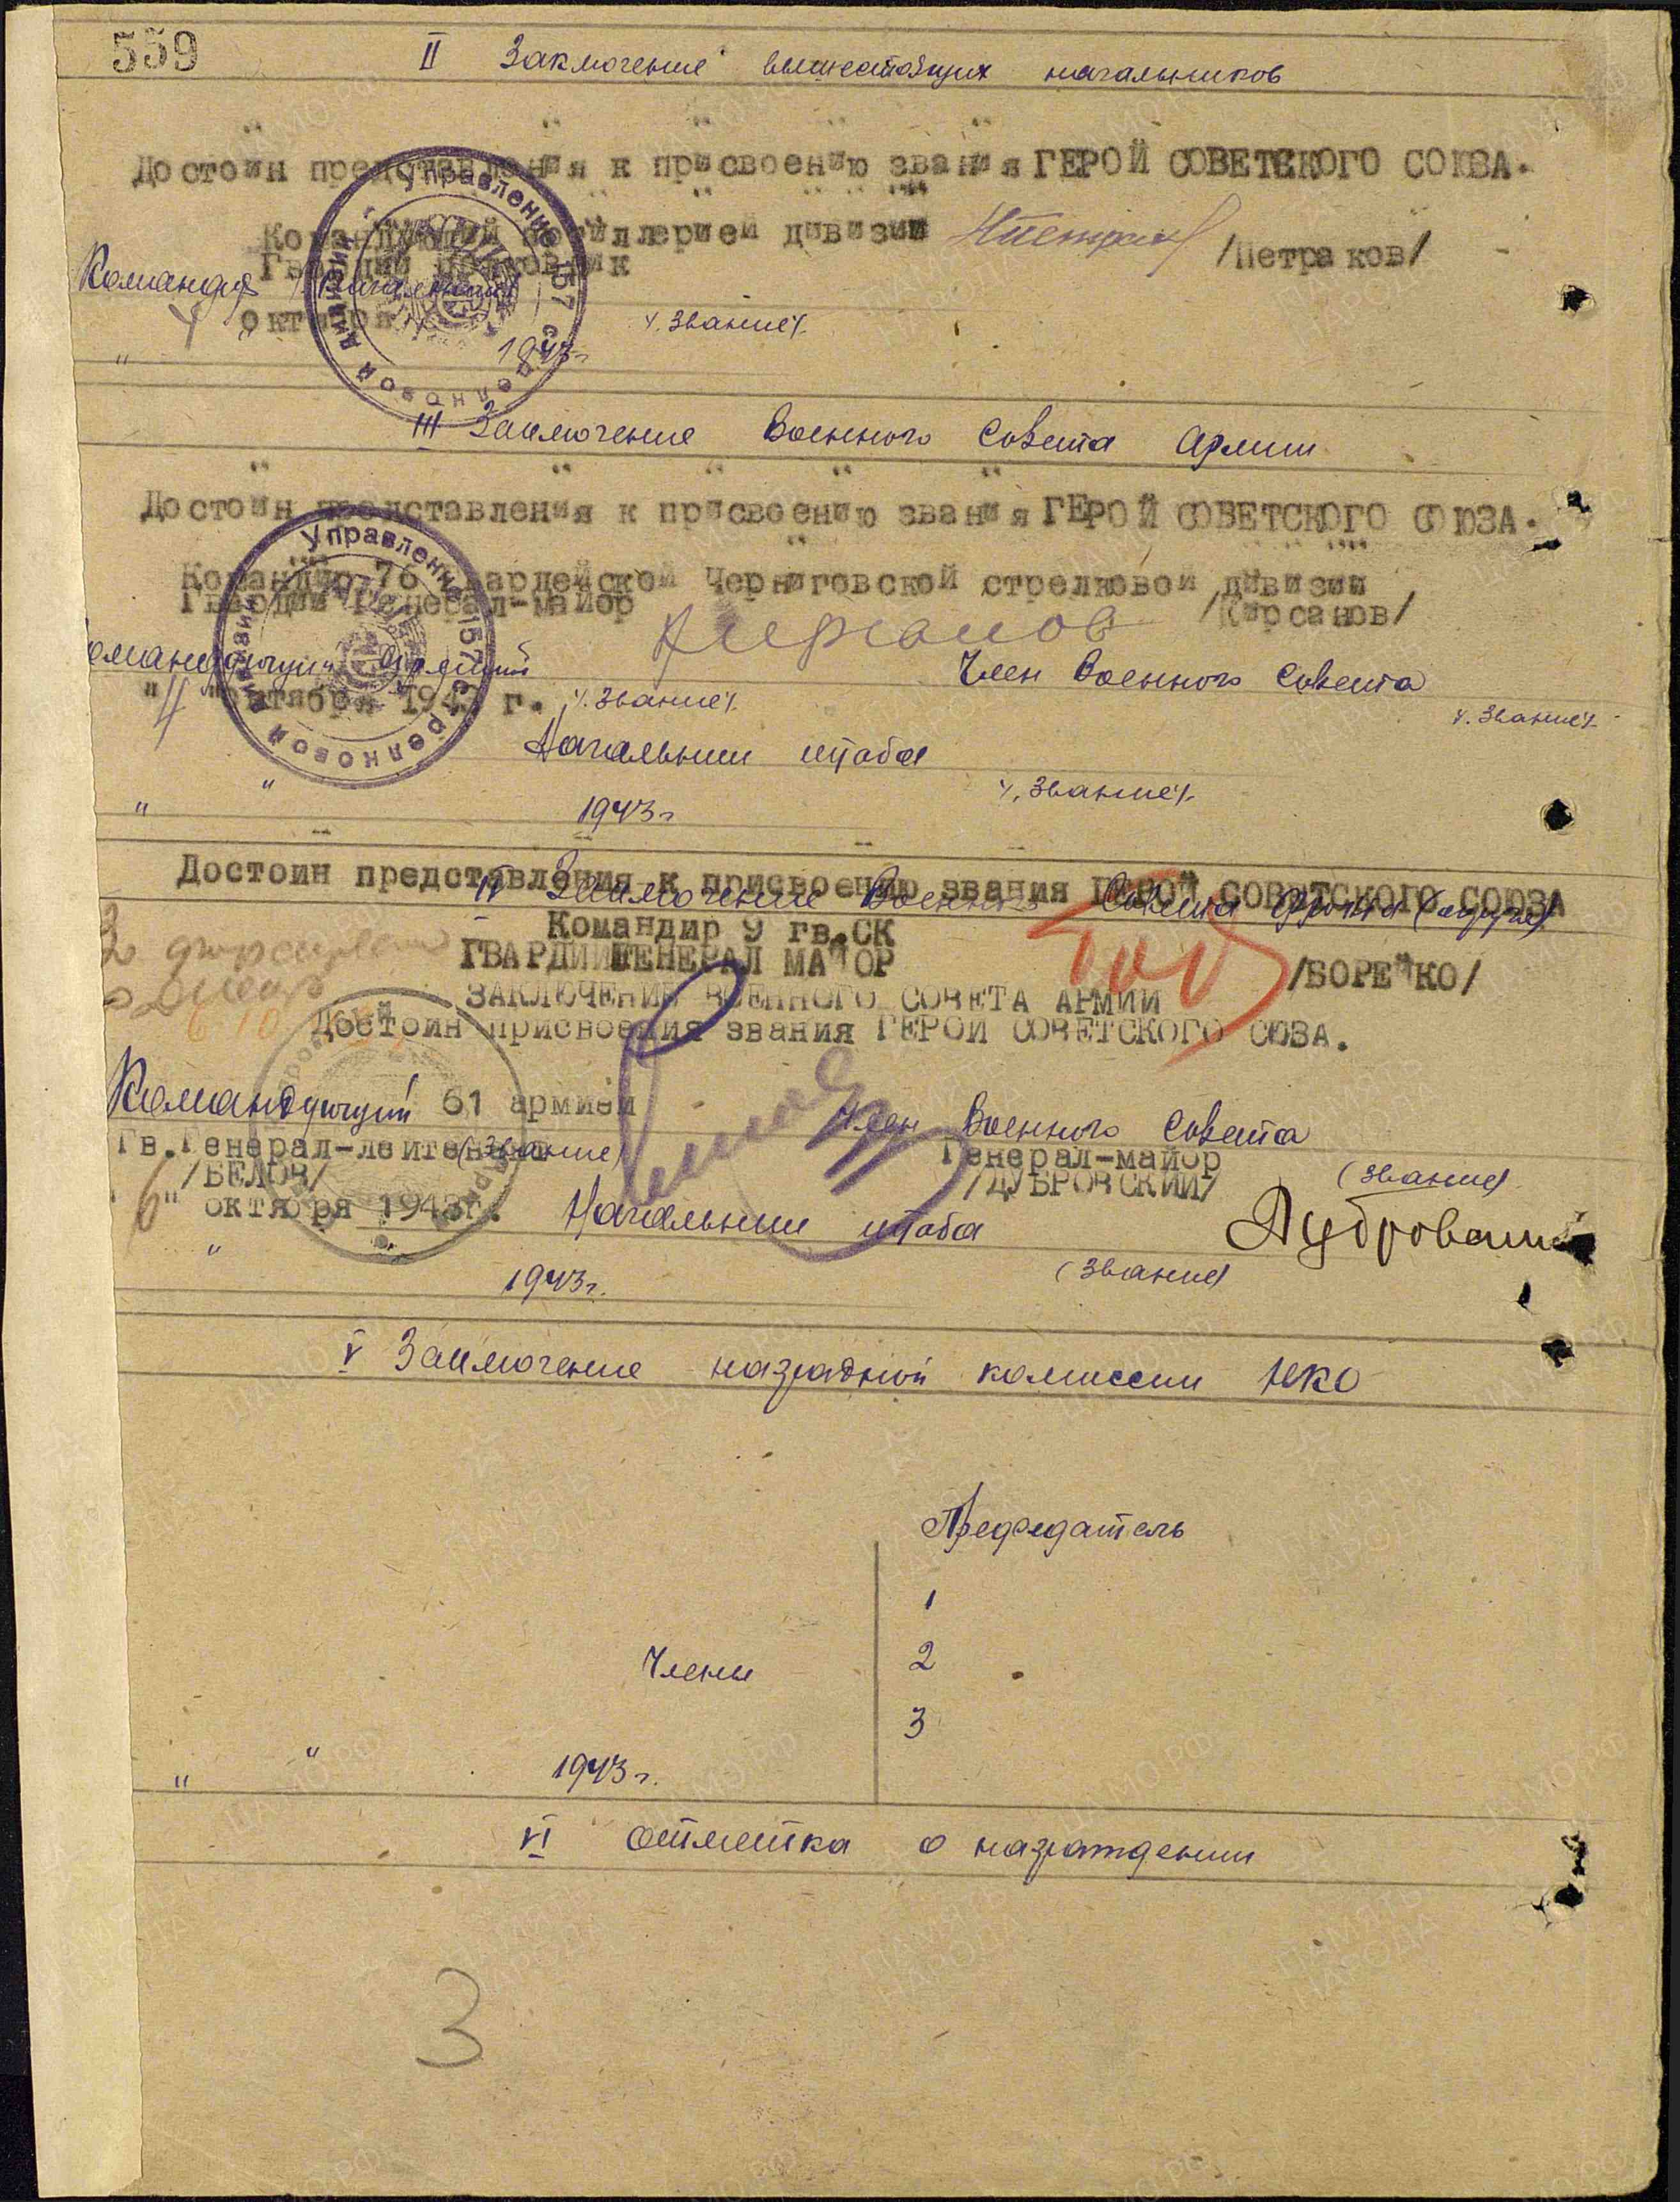 559
II Заключение вышестоящих начальников
Достоин представления к присвоению звания ГЕРОЙ СОВЕТСКОГО СОЮЗА.
Командующий артиллерией дивизии
Гвардии полковник /Петраков/
Командир
4 октября
ч. звание ч.
" 1943г
Управление 157 стрелковой дивизии
III Заключение Военного Совета Армии
Достоин представления к присвоению звания ГЕРОЙ СОВЕТСКОГО СОЮЗА.
Командир 76 Гвардейской Черниговской стрелковой дивизии
Гвардии Генерал-майор /Кирсанов/
Кирсанов
омандующий Армией Член Военного Совета
"4" октября 1943 г. ч. звание ч.
ч. звание ч.
Управление 157 стрелковой дивизии
Начальник штаба
ч. звание ч.
" " 1943г
Достоин представления к присвоению звания ГЕРОЙ СОВЕТСКОГО СОЮЗА
IV Заключение Военного Совета фронта (округа)
Командир 9 гв.СК
ГВАРДИИ ГЕНЕРАЛ МАЙОР /БОРЕЙКО/
ЗАКЛЮЧЕНИЕ ВОЕННОГО СОВЕТА АРМИИ
Достоин присвоения звания ГЕРОЙ СОВЕТСКОГО СОЮЗА.
6 10
Командующий 61 армией Член Военного Совета
Гв.Генерал-лейтенант (звание) Генерал-майор
/БЕЛОВ/ /ДУБРОВСКИЙ/ (звание)
"6" октября 1943г. Начальник штаба Дубровский
" (звание)
1943г.
V Заключение наградной комиссии НКО
Председатель
1
Члены 2
3
" " 1943г.
VI Отметка о награждении
3